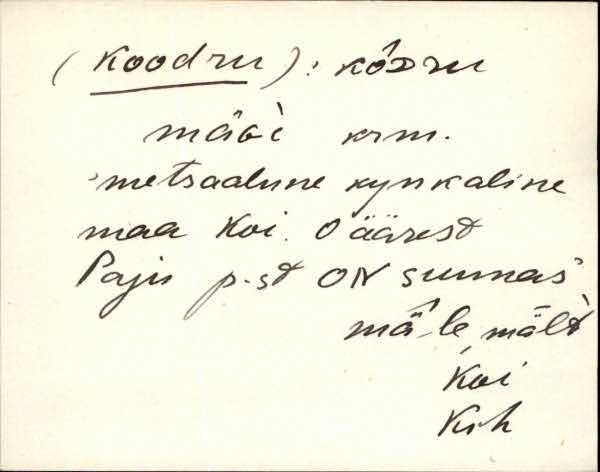 (Koodru): kôDru
mäɢì krm.
metsaalune kynkaline
maa Koi. O äärest
Paju p-st ON suunas
mä`le, mält
Koi
Krh